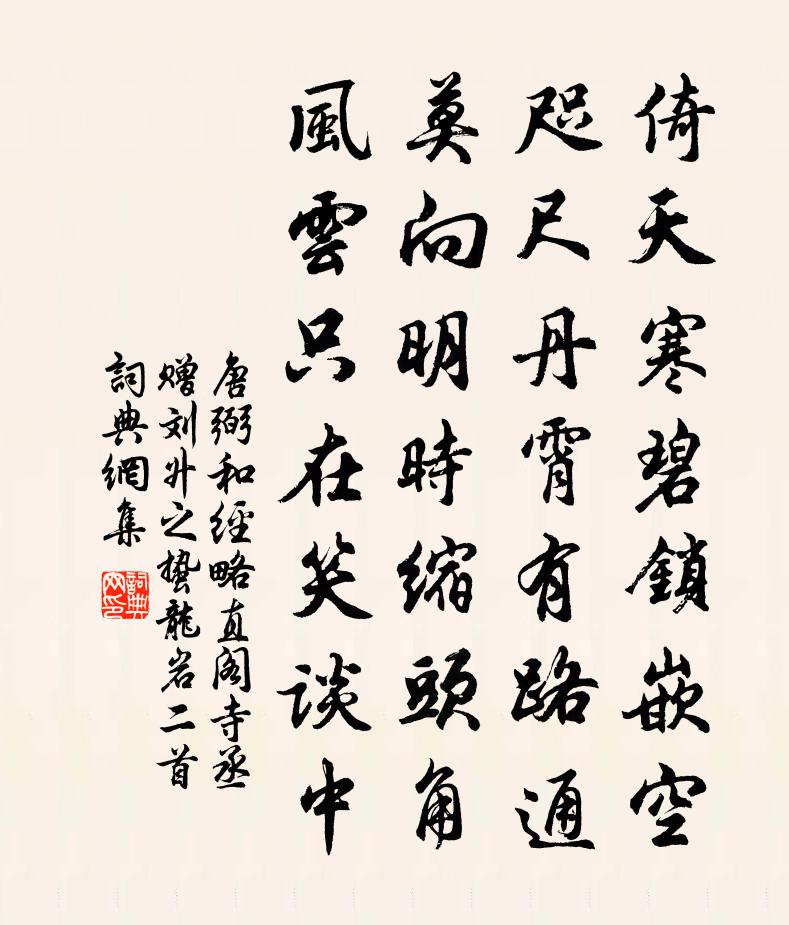 倚天寒碧鎖嵌空
咫尺丹霄有路通
莫向明時縮頭角
風雲只在笑谈中
唐弼和經略直阁寺丞
赠刘升之蛰龍岩二首
詞典網集
詞典网印